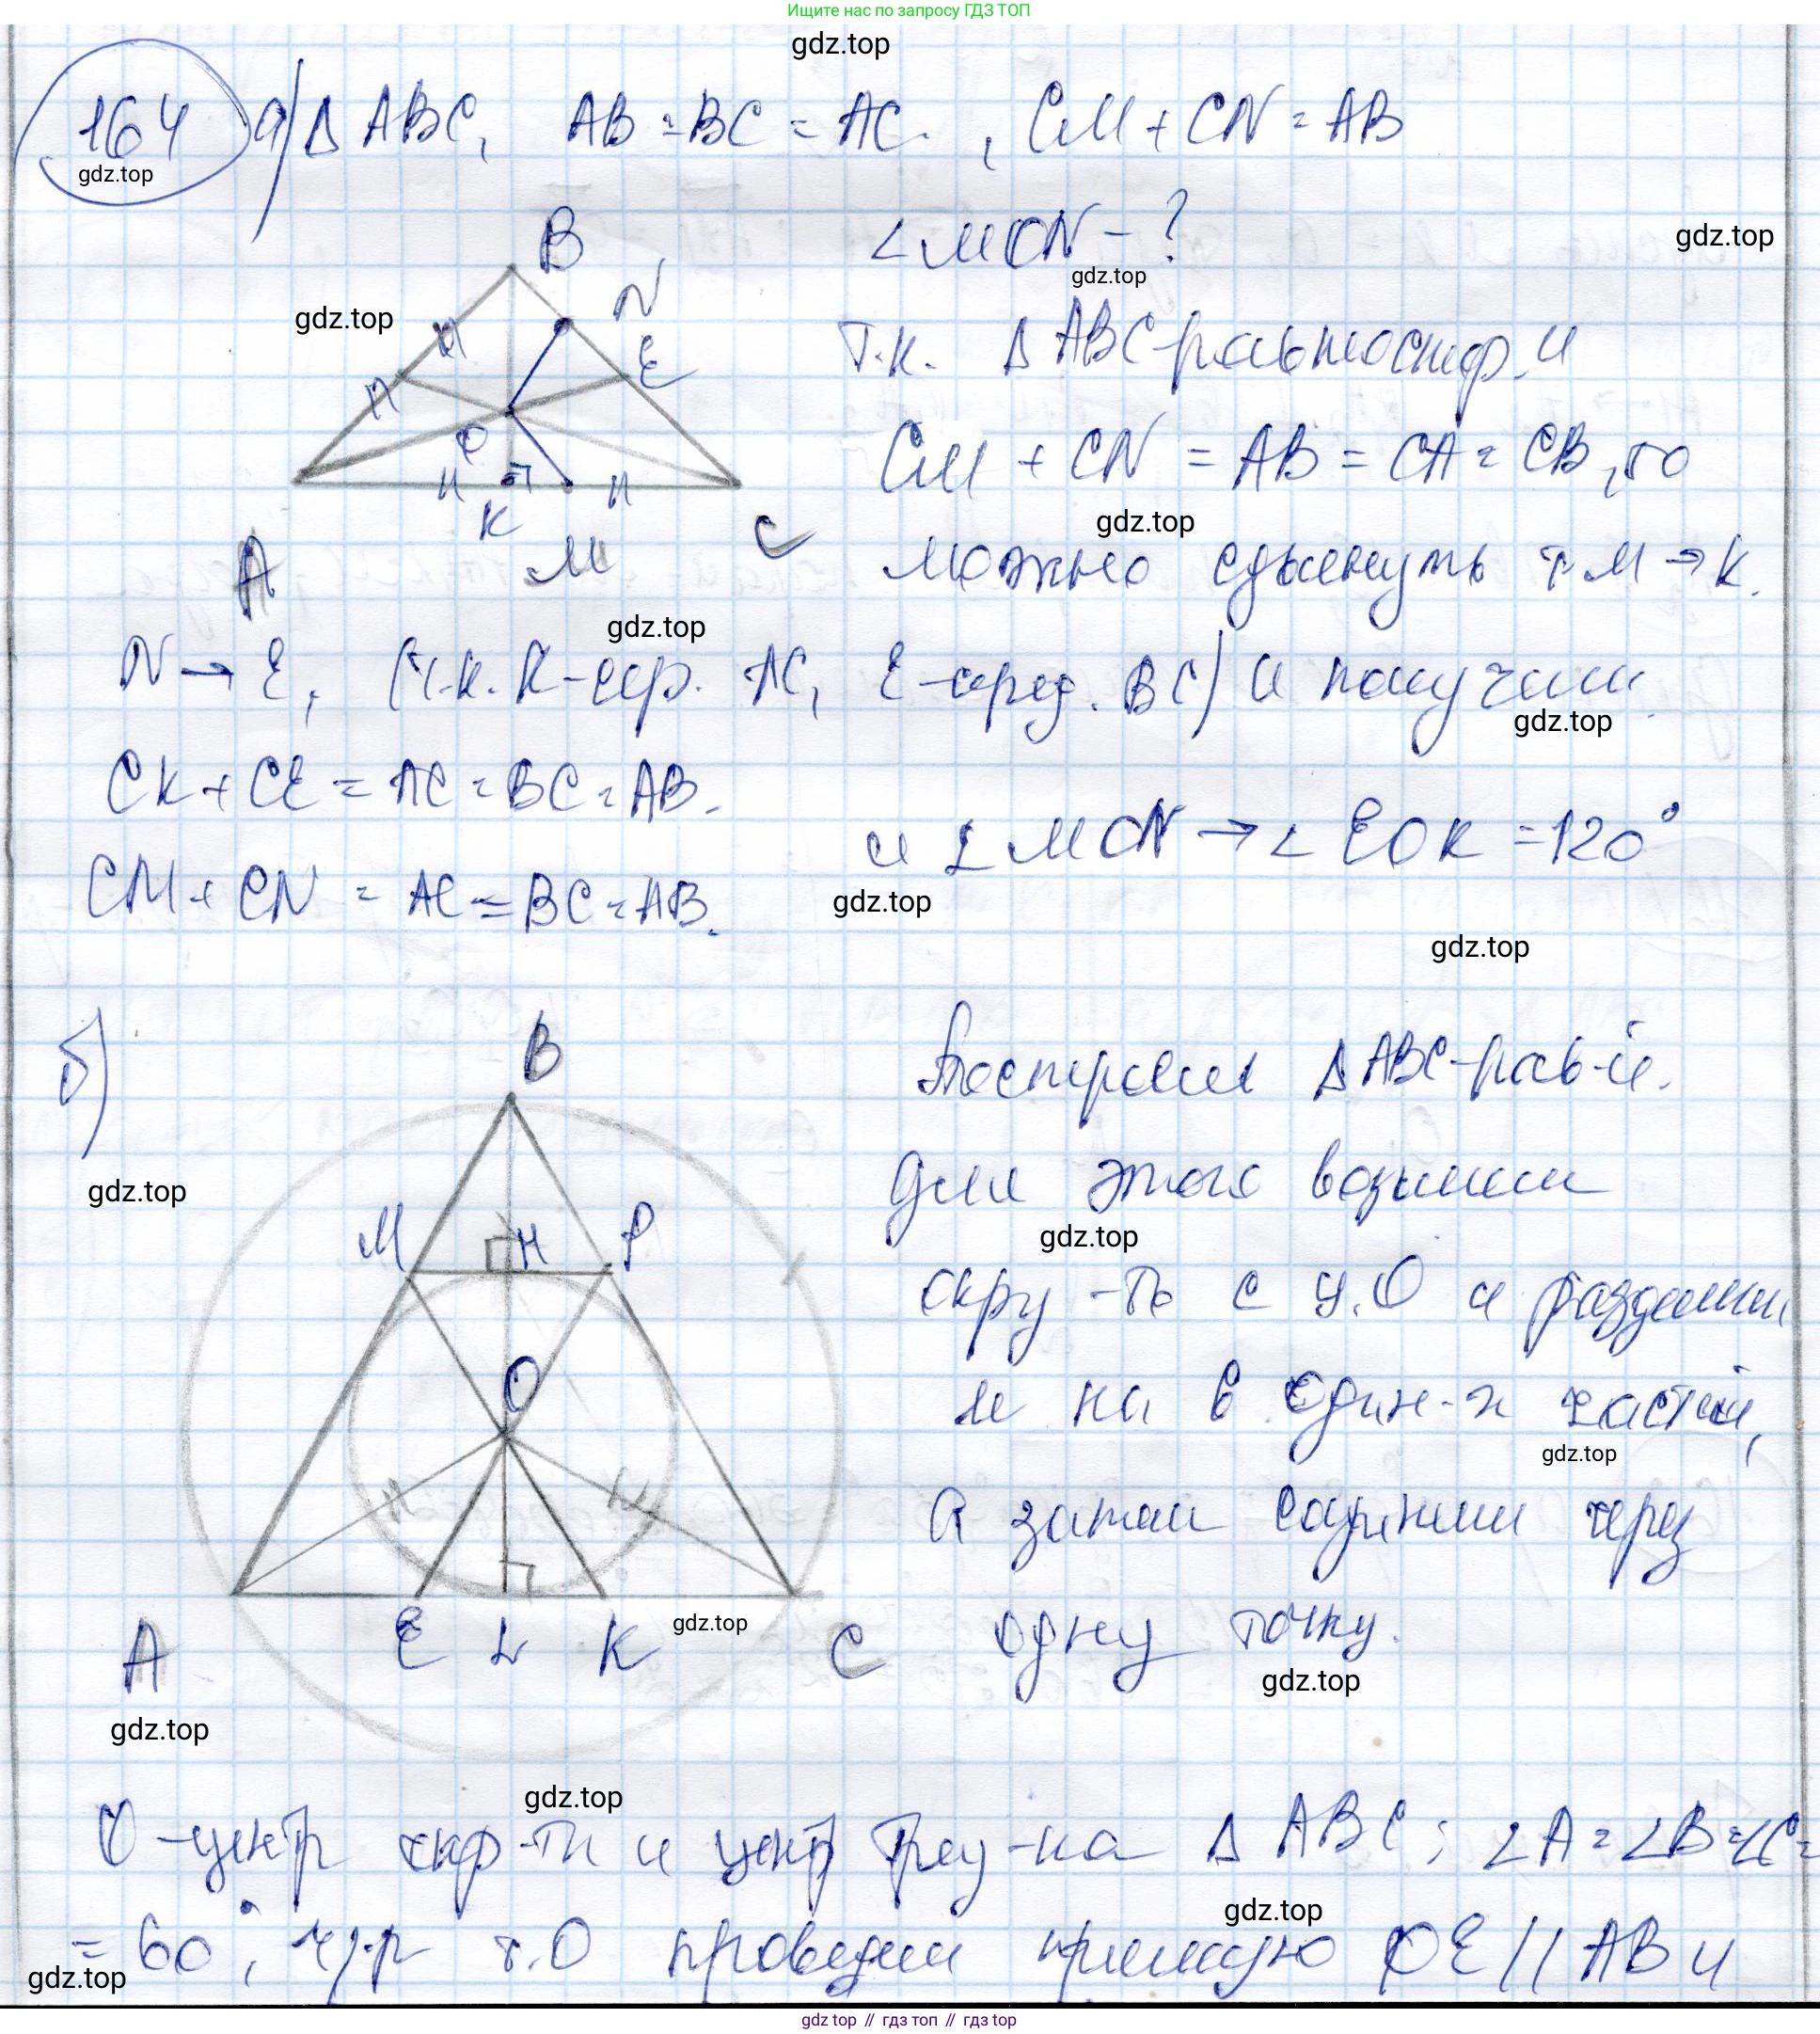 Ищите нас по запросу ГДЗ ТОП
gdz.top
164 а) Δ ABC, AB = BC = AC, CM + CN = AB
gdz.top
∠MON - ?
gdz.top
gdz.top
B
N
E
O
K
M
A
C
gdz.top
т.к. Δ ABC-равностор. и
CM + CN = AB = CA = CB, то
gdz.top
можно сдвинуть т. M → K.
gdz.top
N → E, (т.к. K-сер. AC, E-серед. BC) и получим
gdz.top
CK + CE = AC = BC = AB.
и ∠ MON → ∠ EOK = 120°
CM + CN = AC = BC = AB.
gdz.top
gdz.top
б)
B
M
H
P
O
A
E
L
K
C
gdz.top
gdz.top
gdz.top
Построим Δ ABC-рав-й.
для этого возьмем
gdz.top
окру-ть с ц. O и разделим
ее на 6 один-х частей,
gdz.top
а затем соединим через
одну точку.
gdz.top
gdz.top
O-центр окр-ти и центр треу-ка Δ ABC; ∠A = ∠B = ∠C =
gdz.top
= 60°; ч/р т. O проведем прямую PE || AB и
gdz.top
gdz top // гдз топ // гдз top